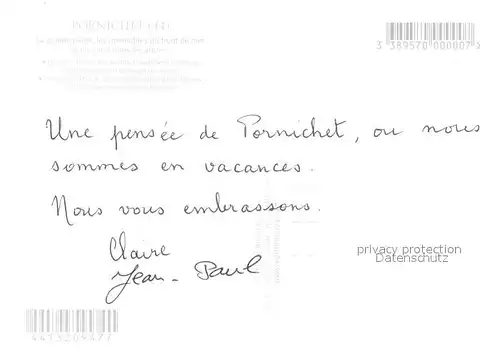 PORNICHET (44)
3 389570 000007
Une pensée de Pornichet, ou nous
sommes en vacances.
Nous vous embrassons.
Claire
Jean-Paul
privacy protection
Datenschutz